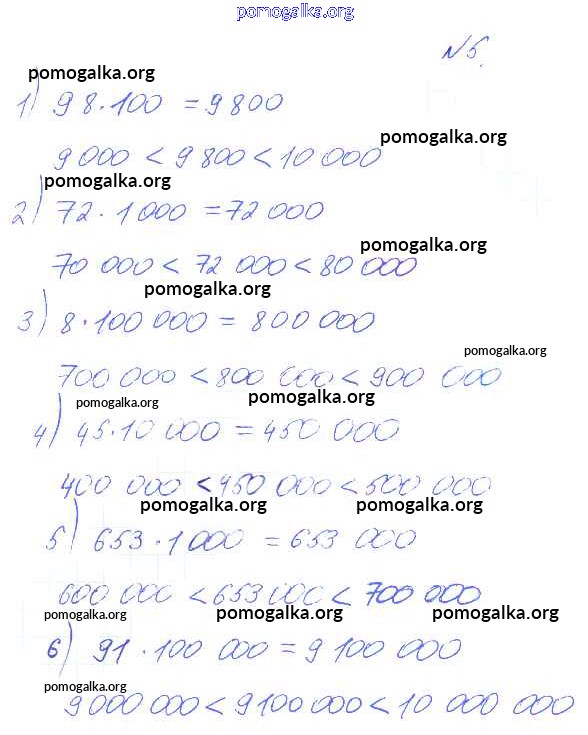 pomogalka.org
№5.
pomogalka.org
1) 98·100 = 9800
pomogalka.org
9 000 < 9 800 < 10 000
pomogalka.org
2) 72·1 000 = 72 000
pomogalka.org
70 000 < 72 000 < 80 000
pomogalka.org
3) 8·100 000 = 800 000
pomogalka.org
700 000 < 800 000 < 900 000
pomogalka.org pomogalka.org
4) 45·10 000 = 450 000
400 000 < 450 000 < 500 000
pomogalka.org pomogalka.org
5) 653·1 000 = 653 000
600 000 < 653 000 < 700 000
pomogalka.org pomogalka.org pomogalka.org
6) 91·100 000 = 9 100 000
pomogalka.org
9 000 000 < 9 100 000 < 10 000 000